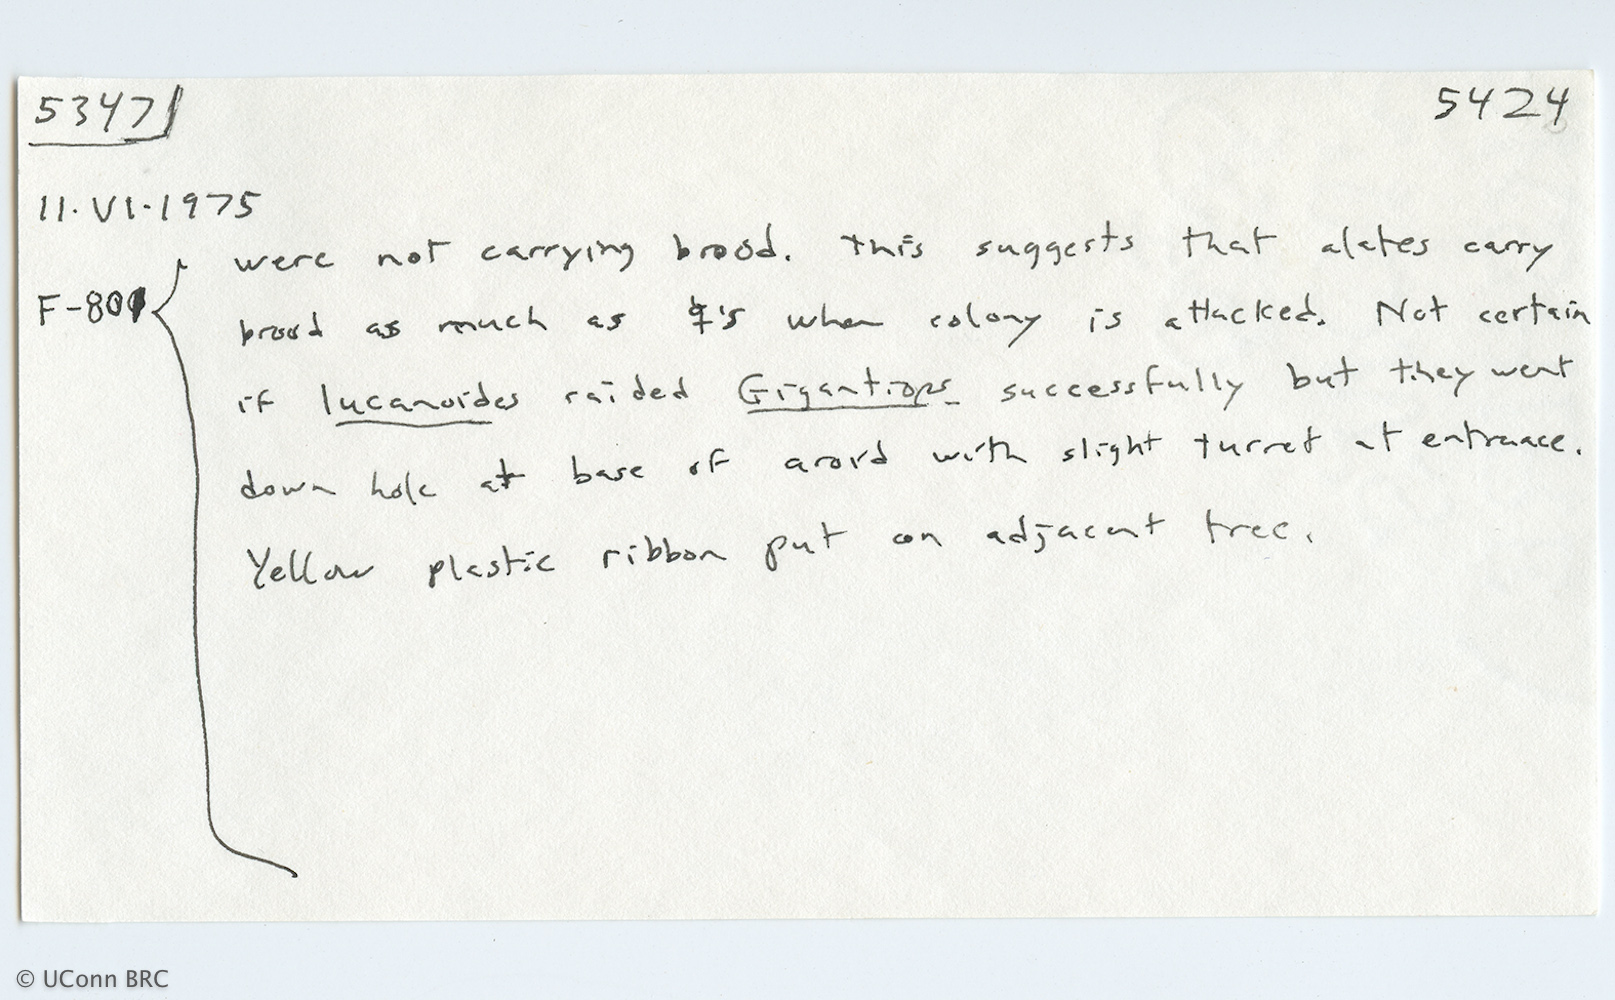 5347 5424
11·VI·1975
F-801 were not carrying brood. This suggests that alates carry
brood as much as ☿'s when colony is attacked. Not certain
if lucanoides raided Gigantiops successfully but they went
down hole at base of aroid with slight turret at entrance.
Yellow plastic ribbon put on adjacent tree.
© UConn BRC